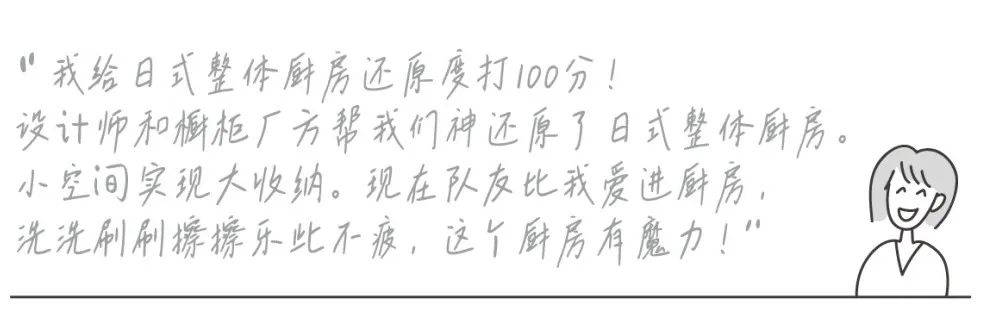 "我给日式整体厨房还原度打100分！
设计师和橱柜厂方帮我们神还原了日式整体厨房。
小空间实现大收纳。现在队友比我爱进厨房，
洗洗刷刷擦擦乐些不疲，这个厨房有魔力！"